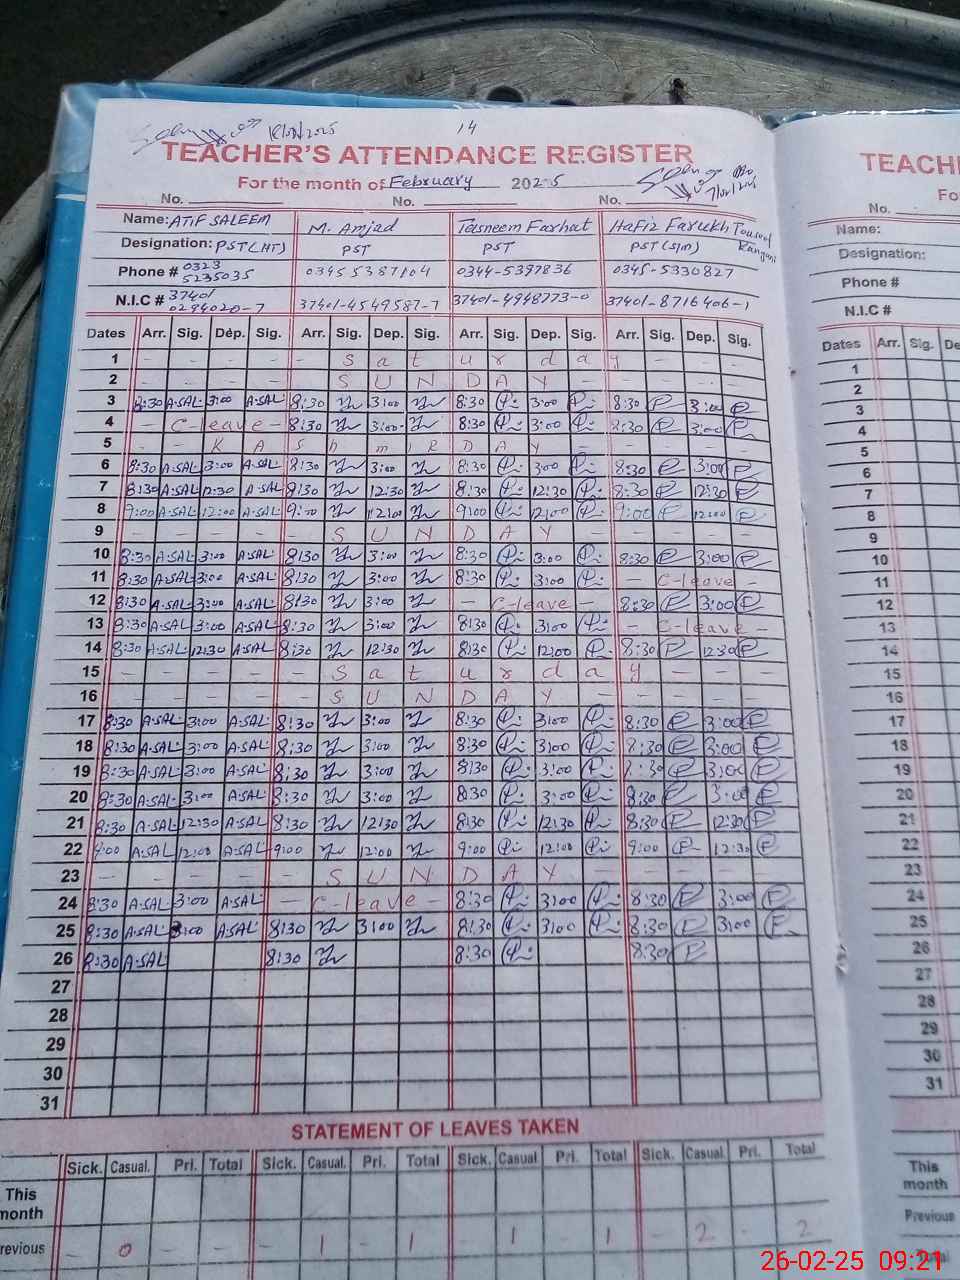 14
TEACHER'S ATTENDANCE REGISTER
For the month of February 2025
No. No. No.
Name: ATIF SALEEM M. Amjad Tasneem Farhat Hafiz Farukh
Designation: PST(HT) PST PST PST
Phone # 0323 5235035 03455387104 0344-5397836 0345-5330827
N.I.C # 37401 0294020-7 37401-4549587-7 37401-4948773-0 37401-8716406-1
Dates Arr. Sig. Dep. Sig. Arr. Sig. Dep. Sig. Arr. Sig. Dep. Sig. Arr. Sig. Dep. Sig.
1 - - - - - S a t u r d a y - - -
2 - - - - - S U N D A Y - - - -
3 8:30 A-SAL 3:00 A-SAL 8:30 3:00 8:30 3:00 8:30 3:00
4 - C-leave - 8:30 3:00 8:30 3:00 8:30 3:00
5 - - K A S h m i R D A Y - - - -
6 8:30 A-SAL 3:00 A-SAL 8:30 3:00 8:30 3:00 8:30 3:00
7 8:30 A-SAL 12:30 A-SAL 8:30 12:30 8:30 12:30 8:30 12:30
8 9:00 A-SAL 12:00 A-SAL 9:00 12:00 9:00 12:00 9:00 12:00
9 - - - - - S U N D A Y - - - -
10 8:30 A-SAL 3:00 A-SAL 8:30 3:00 8:30 3:00 8:30 3:00
11 8:30 A-SAL 3:00 A-SAL 8:30 3:00 8:30 3:00 - C-leave -
12 8:30 A-SAL 3:00 A-SAL 8:30 3:00 - C-leave - 8:30 3:00
13 8:30 A-SAL 3:00 A-SAL 8:30 3:00 8:30 3:00 - C-leave -
14 8:30 A-SAL 12:30 A-SAL 8:30 12:30 8:30 12:00 8:30 12:30
15 - - - - - S a t u r d a y - - -
16 - - - - - S U N D A Y - - - -
17 8:30 A-SAL 3:00 A-SAL 8:30 3:00 8:30 3:00 8:30 3:00
18 8:30 A-SAL 3:00 A-SAL 8:30 3:00 8:30 3:00 8:30 3:00
19 8:30 A-SAL 3:00 A-SAL 8:30 3:00 8:30 3:00 8:30 3:00
20 8:30 A-SAL 3:00 A-SAL 8:30 3:00 8:30 3:00 8:30 3:00
21 8:30 A-SAL 12:30 A-SAL 8:30 12:30 8:30 12:30 8:30 12:30
22 9:00 A-SAL 12:00 A-SAL 9:00 12:00 9:00 12:00 9:00 12:30
23 - - - - - S U N D A Y - - - -
24 8:30 A-SAL 3:00 A-SAL - C-leave - 8:30 3:00 8:30 3:00
25 8:30 A-SAL 3:00 A-SAL 8:30 3:00 8:30 3:00 8:30 3:00
26 8:30 A-SAL 8:30 8:30 8:30
27
28
29
30
31
STATEMENT OF LEAVES TAKEN
Sick. Casual. Pri. Total Sick. Casual. Pri. Total Sick. Casual. Pri. Total Sick. Casual. Pri. Total
This month
revious - 0 - - - 1 - 1 - 1 - 1 - 2 - 2
TEACH
Fo
No.
Name:
Designation:
Phone #
N.I.C #
Dates Arr. Sig. De
1
2
3
4
5
6
7
8
9
10
11
12
13
14
15
16
17
18
19
20
21
22
23
24
25
26
27
28
29
30
31
This month
Previous
Total
26-02-25 09:21